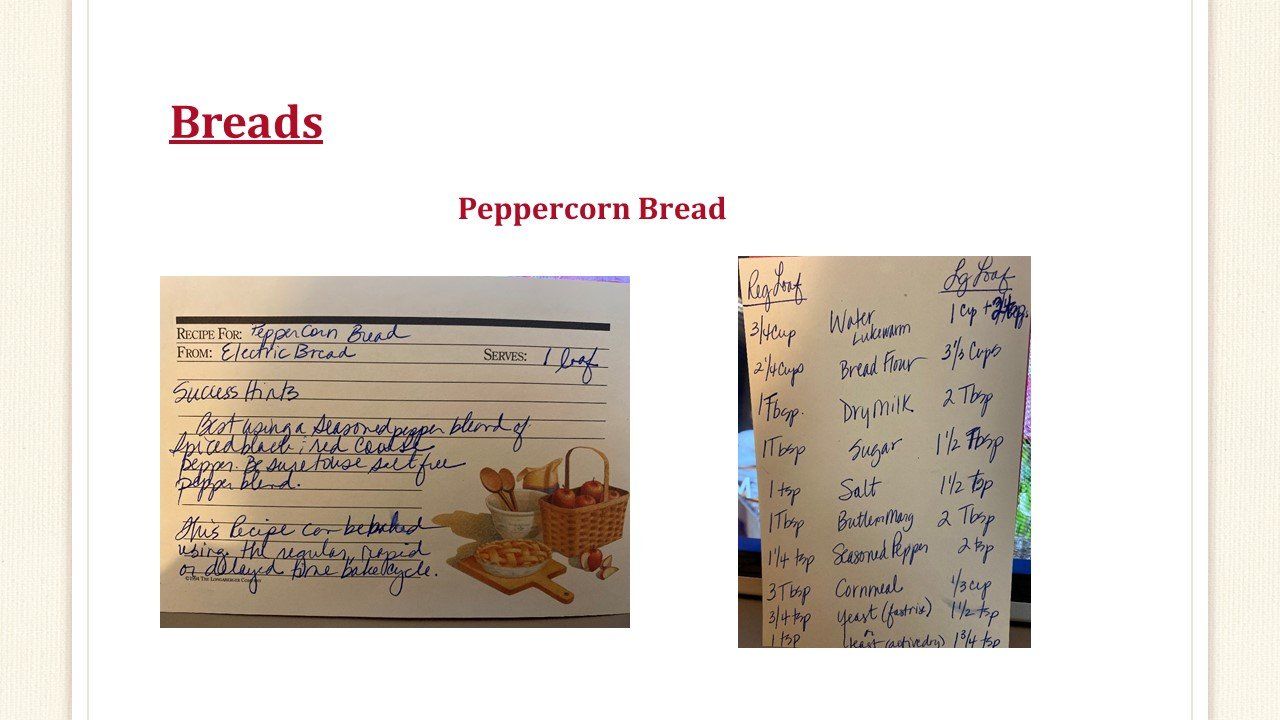 Breads
Peppercorn Bread
RECIPE FOR: Peppercorn Bread
FROM: Electric Bread SERVES: 1 loaf
Success Hints
Best using a seasoned pepper blend of
spiced black & red coarse
pepper. Be sure to use salt free
pepper blend.
This Recipe can be baked
using the regular, rapid
or delayed time bake cycle.
©1994 THE LONGABERGER COMPANY
Reg Loaf Lg Loaf
3/4 Cup Water Lukewarm 1 Cup +
2 1/4 Cups Bread Flour 3 1/3 Cups
1 Tbsp. Dry Milk 2 Tbsp
1 Tbsp Sugar 1 1/2 Tbsp
1 tsp Salt 1 1/2 tsp
1 Tbsp Butter Marg 2 Tbsp
1 1/4 tsp Seasoned Pepper 2 tsp
3 Tbsp Cornmeal 1/3 cup
3/4 tsp yeast (fast rise) 1 1/2 tsp
or
1 tsp yeast (active dry) 1 3/4 tsp